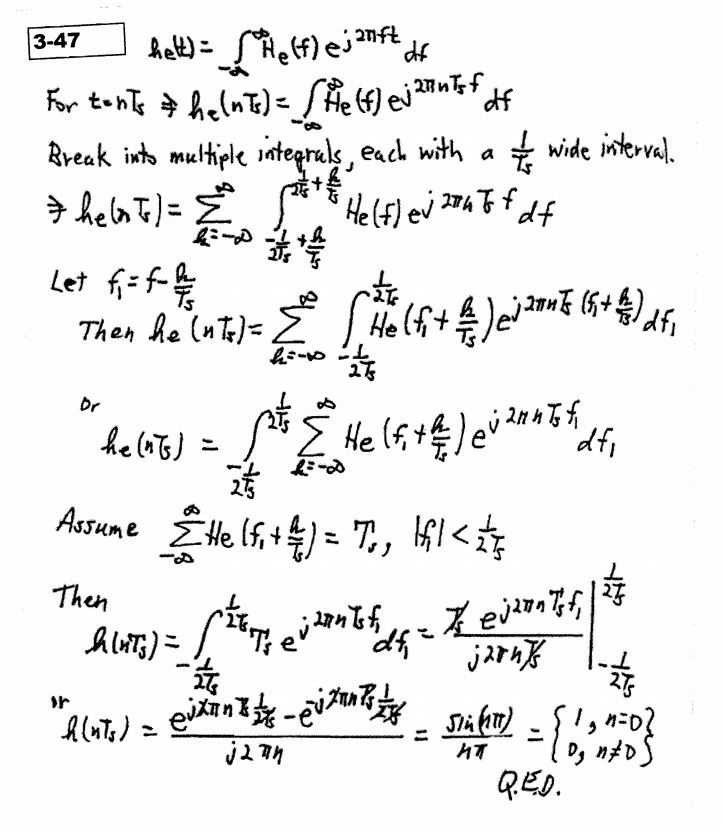 3-47
he(t) = ∫_{-∞}^{∞} He(f) e^{j2πft} df
For t=nTs ⇒ he(nTs) = ∫_{-∞}^{∞} He(f) e^{j2πnTsf} df
Break into multiple integrals, each with a 1/Ts wide interval.
⇒ he(nTs) = ∑_{k=-∞}^{∞} ∫_{-1/2Ts + k/Ts}^{1/2Ts + k/Ts} He(f) e^{j2πnTsf} df
Let f₁ = f - k/Ts
Then he(nTs) = ∑_{k=-∞}^{∞} ∫_{-1/2Ts}^{1/2Ts} He(f₁ + k/Ts) e^{j2πnTs(f₁ + k/Ts)} df₁
or
he(nTs) = ∫_{-1/2Ts}^{1/2Ts} ∑_{k=-∞}^{∞} He(f₁ + k/Ts) e^{j2πnTsf₁} df₁
Assume ∑_{-∞}^{∞} He(f₁ + k/Ts) = Ts, |f₁| < 1/2Ts
Then
h(nTs) = ∫_{-1/2Ts}^{1/2Ts} Ts e^{j2πnTsf₁} df₁ = Ts e^{j2πnTsf₁} / j2πnTs |_{-1/2Ts}^{1/2Ts}
or
h(nTs) = (e^{j2πnTs 1/2Ts} - e^{-j2πnTs 1/2Ts}) / j2πn = sin(nπ)/nπ = {1, n=0
0, n≠0}
Q.E.D.